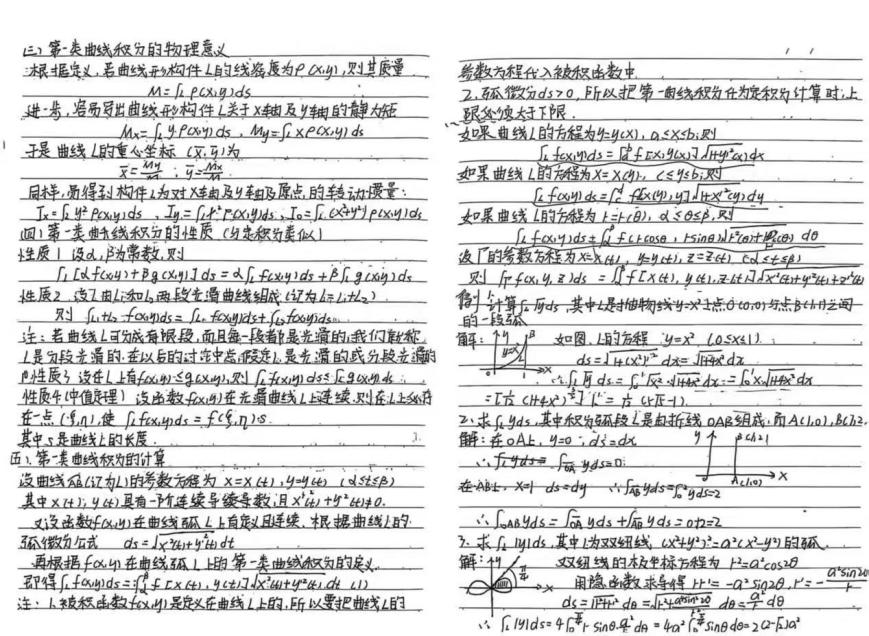 (三) 第一类曲线积分的物理意义
根据定义，若曲线形构件L的线密度为ρ(x,y)，则其质量
M=∫_L ρ(x,y)ds
进一步，容易写出曲线形构件L关于x轴及y轴的静力矩
Mx=∫_L yρ(x,y)ds，My=∫_L xρ(x,y)ds
于是曲线L的重心坐标(x̄,ȳ)为
x̄=My/M；ȳ=Mx/M
同样，易得到构件L为对X轴及y轴及原点的转动惯量：
Ix=∫_L y²ρ(x,y)ds，Iy=∫_L x²ρ(x,y)ds，Io=∫_L(x²+y²)ρ(x,y)ds
(四) 第一类曲线积分的性质 (与定积分类似)
性质1 设α,β为常数，则
∫_L[αf(x,y)+βg(x,y)]ds=α∫_L f(x,y)ds+β∫_L g(x,y)ds
性质2 设L由L₁和L₂两段光滑曲线组成(记为L=L₁+L₂)
则 ∫_{L₁+L₂} f(x,y)ds=∫_{L₁} f(x,y)ds+∫_{L₂} f(x,y)ds
注：若曲线L可分成有限段，而且每一段都是光滑的，我们就称
L是分段光滑的，在以后的讨论中总假定L是光滑的或分段光滑的
性质3 设在L上有f(x,y)≤g(x,y)，则∫_L f(x,y)ds≤∫_L g(x,y)ds
性质4(中值定理) 设函数f(x,y)在光滑曲线L上连续，则在L上必存
在一点(ξ,η)，使∫_L f(x,y)ds=f(ξ,η)·s
其中s是曲线L的长度
五、第一类曲线积分的计算
设曲线(记为L)的参数方程为 x=x(t)，y=y(t) (α≤t≤β)
其中x(t)，y(t)具有一阶连续导数，且x'²(t)+y'²(t)≠0.
又设函数f(x,y)在曲线弧L上有定义且连续，根据曲线L的
弧微分公式 ds=√x'²(t)+y'²(t) dt
再根据f(x,y)在曲线弧L上的第一类曲线积分的定义
即得∫_L f(x,y)ds=∫_α^β f[x(t),y(t)]√x'²(t)+y'²(t) dt (1)
注：1.被积函数f(x,y)是定义在曲线L上的，所以要把曲线L的
参数方程代入被积函数中
2.弧微分ds>0，所以把第一曲线积分化为定积分计算时，上
限必须大于下限.
如果曲线L的方程为y=y(x)，a≤x≤b，则
∫_L f(x,y)ds=∫_a^b f[x,y(x)]√1+y'²(x) dx
如果曲线L的方程为x=x(y)，c≤y≤b，则
∫_L f(x,y)ds=∫_c^d f[x(y),y]√1+x'²(y) dy
如果曲线L的方程为r=r(θ)，α≤θ≤β，则
∫_L f(x,y)ds=∫_α^β f(rcosθ，rsinθ)√r²(θ)+r'²(θ) dθ
设Γ的参数方程为x=x(t)，y=y(t)，z=z(t) (α≤t≤β)
则 ∫_Γ f(x,y,z)ds=∫_α^β f[x(t),y(t),z(t)]√x'²(t)+y'²(t)+z'²(t)
例1 计算∫_L √y ds，其中L是抛物线y=x²上点O(0,0)与点B(1,1)之间
的一段弧
解：y B y=x² L 0 1 x 如图，L的方程 y=x² (0≤x≤1)
ds=√1+(x²)'² dx=√1+4x² dx
∴∫_L √y ds=∫_0^1 √x² √1+4x² dx=∫_0^1 x√1+4x² dx
=[1/12 (1+4x²)^{3/2}]_0^1=1/12(5√5-1)
2.求∫_L yds，其中积分弧段L是由折线OAB组成，而A(1,0)，B(1,2)
解：在OA上，y=0，ds=dx y B(1,2)
∴∫_{OA} yds=0 A(1,0) x
在AB上，x=1 ds=dy ∴∫_{AB} yds=∫_0^2 y ds=2
∴∫_{OAB} yds=∫_{OA} yds+∫_{AB} yds=0+2=2
3.求∫_L |y|ds，其中L为双纽线 (x²+y²)²=a²(x²-y²)的弧
解：y π/4 x 双纽线的极坐标方程为 r²=a²cos2θ
用隐函数求导得 rr'=-a²sin2θ，r'=-a²sin2θ/r
ds=√r²+r'² dθ=√r²+a⁴sin²2θ/r² dθ=a²/r dθ
∴∫_L |y|ds=4∫_0^{π/4} r sinθ·a²/r dθ=4a²∫_0^{π/4} sinθdθ=2(2-√2)a²